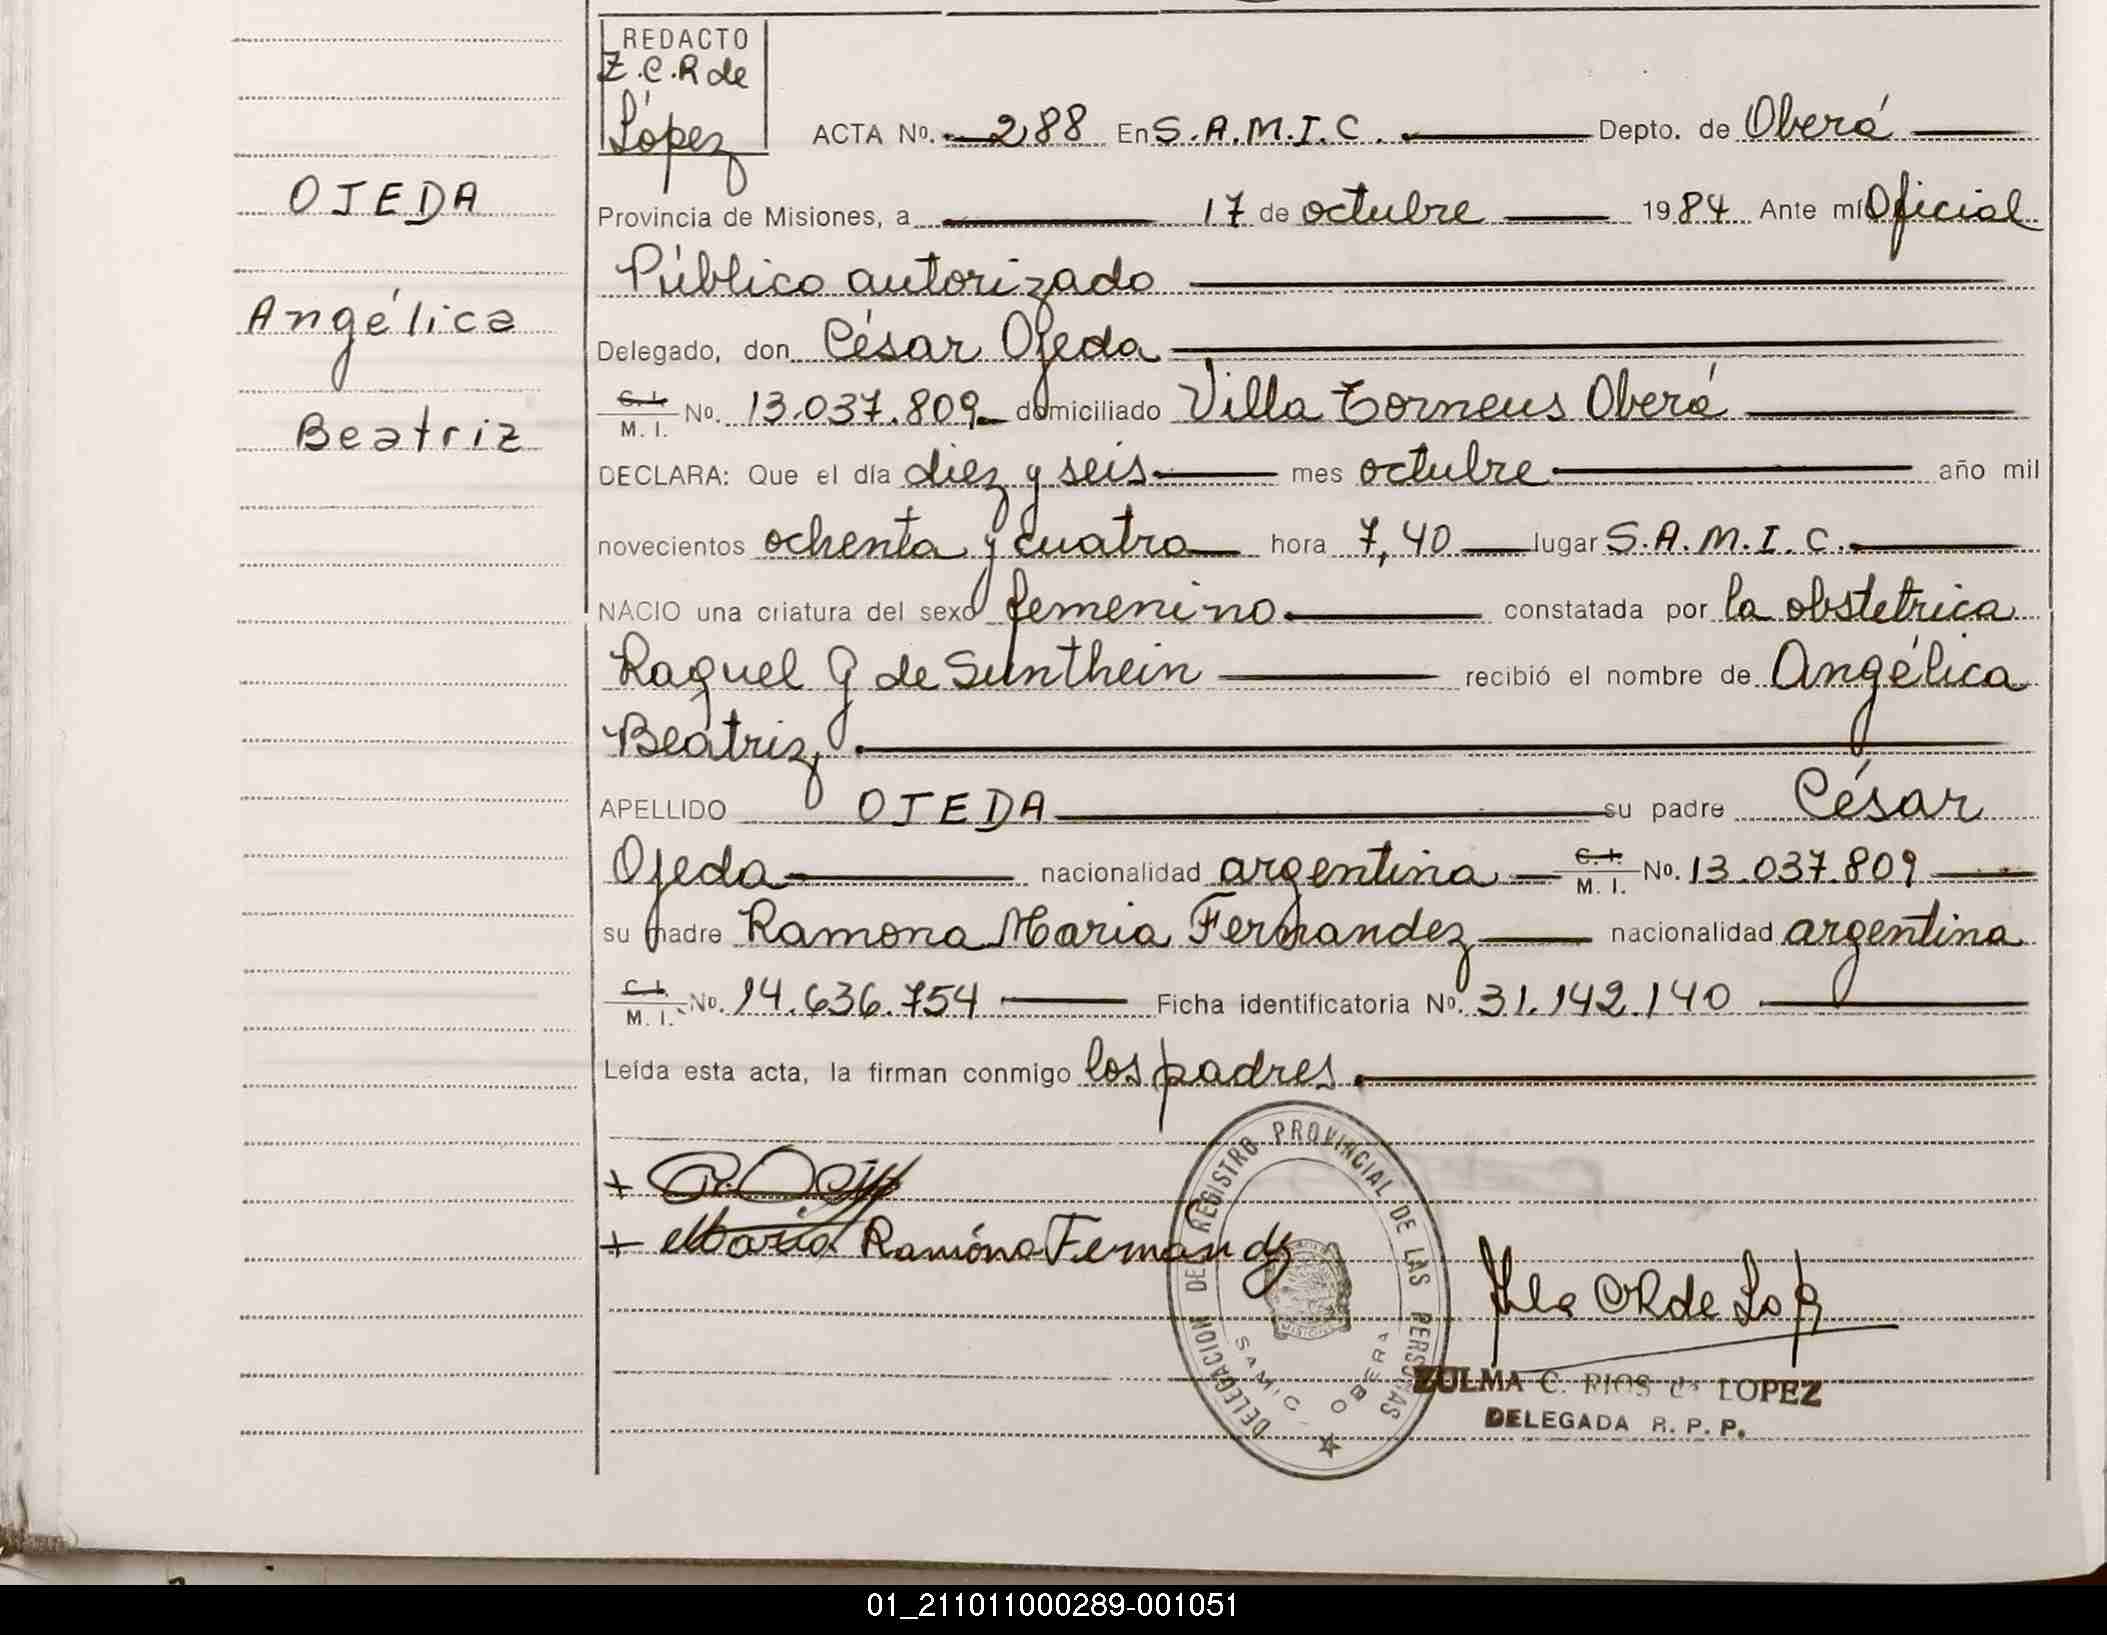 REDACTO
Z.C.R de
López
ACTA No. 288 En S.A.M.I.C. Depto. de Oberá
OJEDA
Provincia de Misiones, a 17 de octubre 1984 Ante mí Oficial
Público autorizado
Angélica
Delegado, don César Ojeda
Beatriz
C. I. M. I. No. 13.037.809 domiciliado Villa Torneus Oberá
DECLARA: Que el día diez y seis mes octubre año mil
novecientos ochenta y cuatro hora 7,40 lugar S.A.M.I.C.
NACIO una criatura del sexo femenino constatada por la obstetrica
Raquel G de Sunthein recibió el nombre de Angélica
Beatriz
APELLIDO OJEDA su padre César
Ojeda nacionalidad argentina C. I. M. I. No. 13.037.809
su madre Ramona Maria Fernandez nacionalidad argentina
C. I. M. I. No. 14.636.754 Ficha identificatoria No. 31.142.140
Leída esta acta, la firman conmigo los padres.
+
+ Maria Ramóna Fernandz
DELEGACION DEL REGISTRO PROVINCIAL DE LAS PERSONAS
SAMIC - OBERA
MISIONES
ZULMA C. RIOS de LOPEZ
DELEGADA R. P. P.
01_211011000289-001051